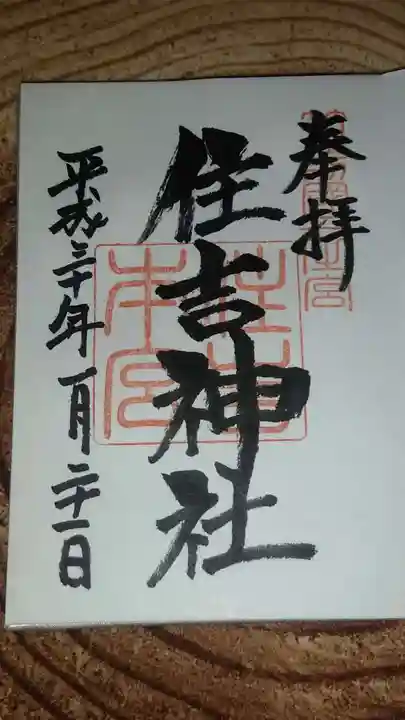 奉拝
住吉神社
住吉
本宮
平成三十年一月二十一日